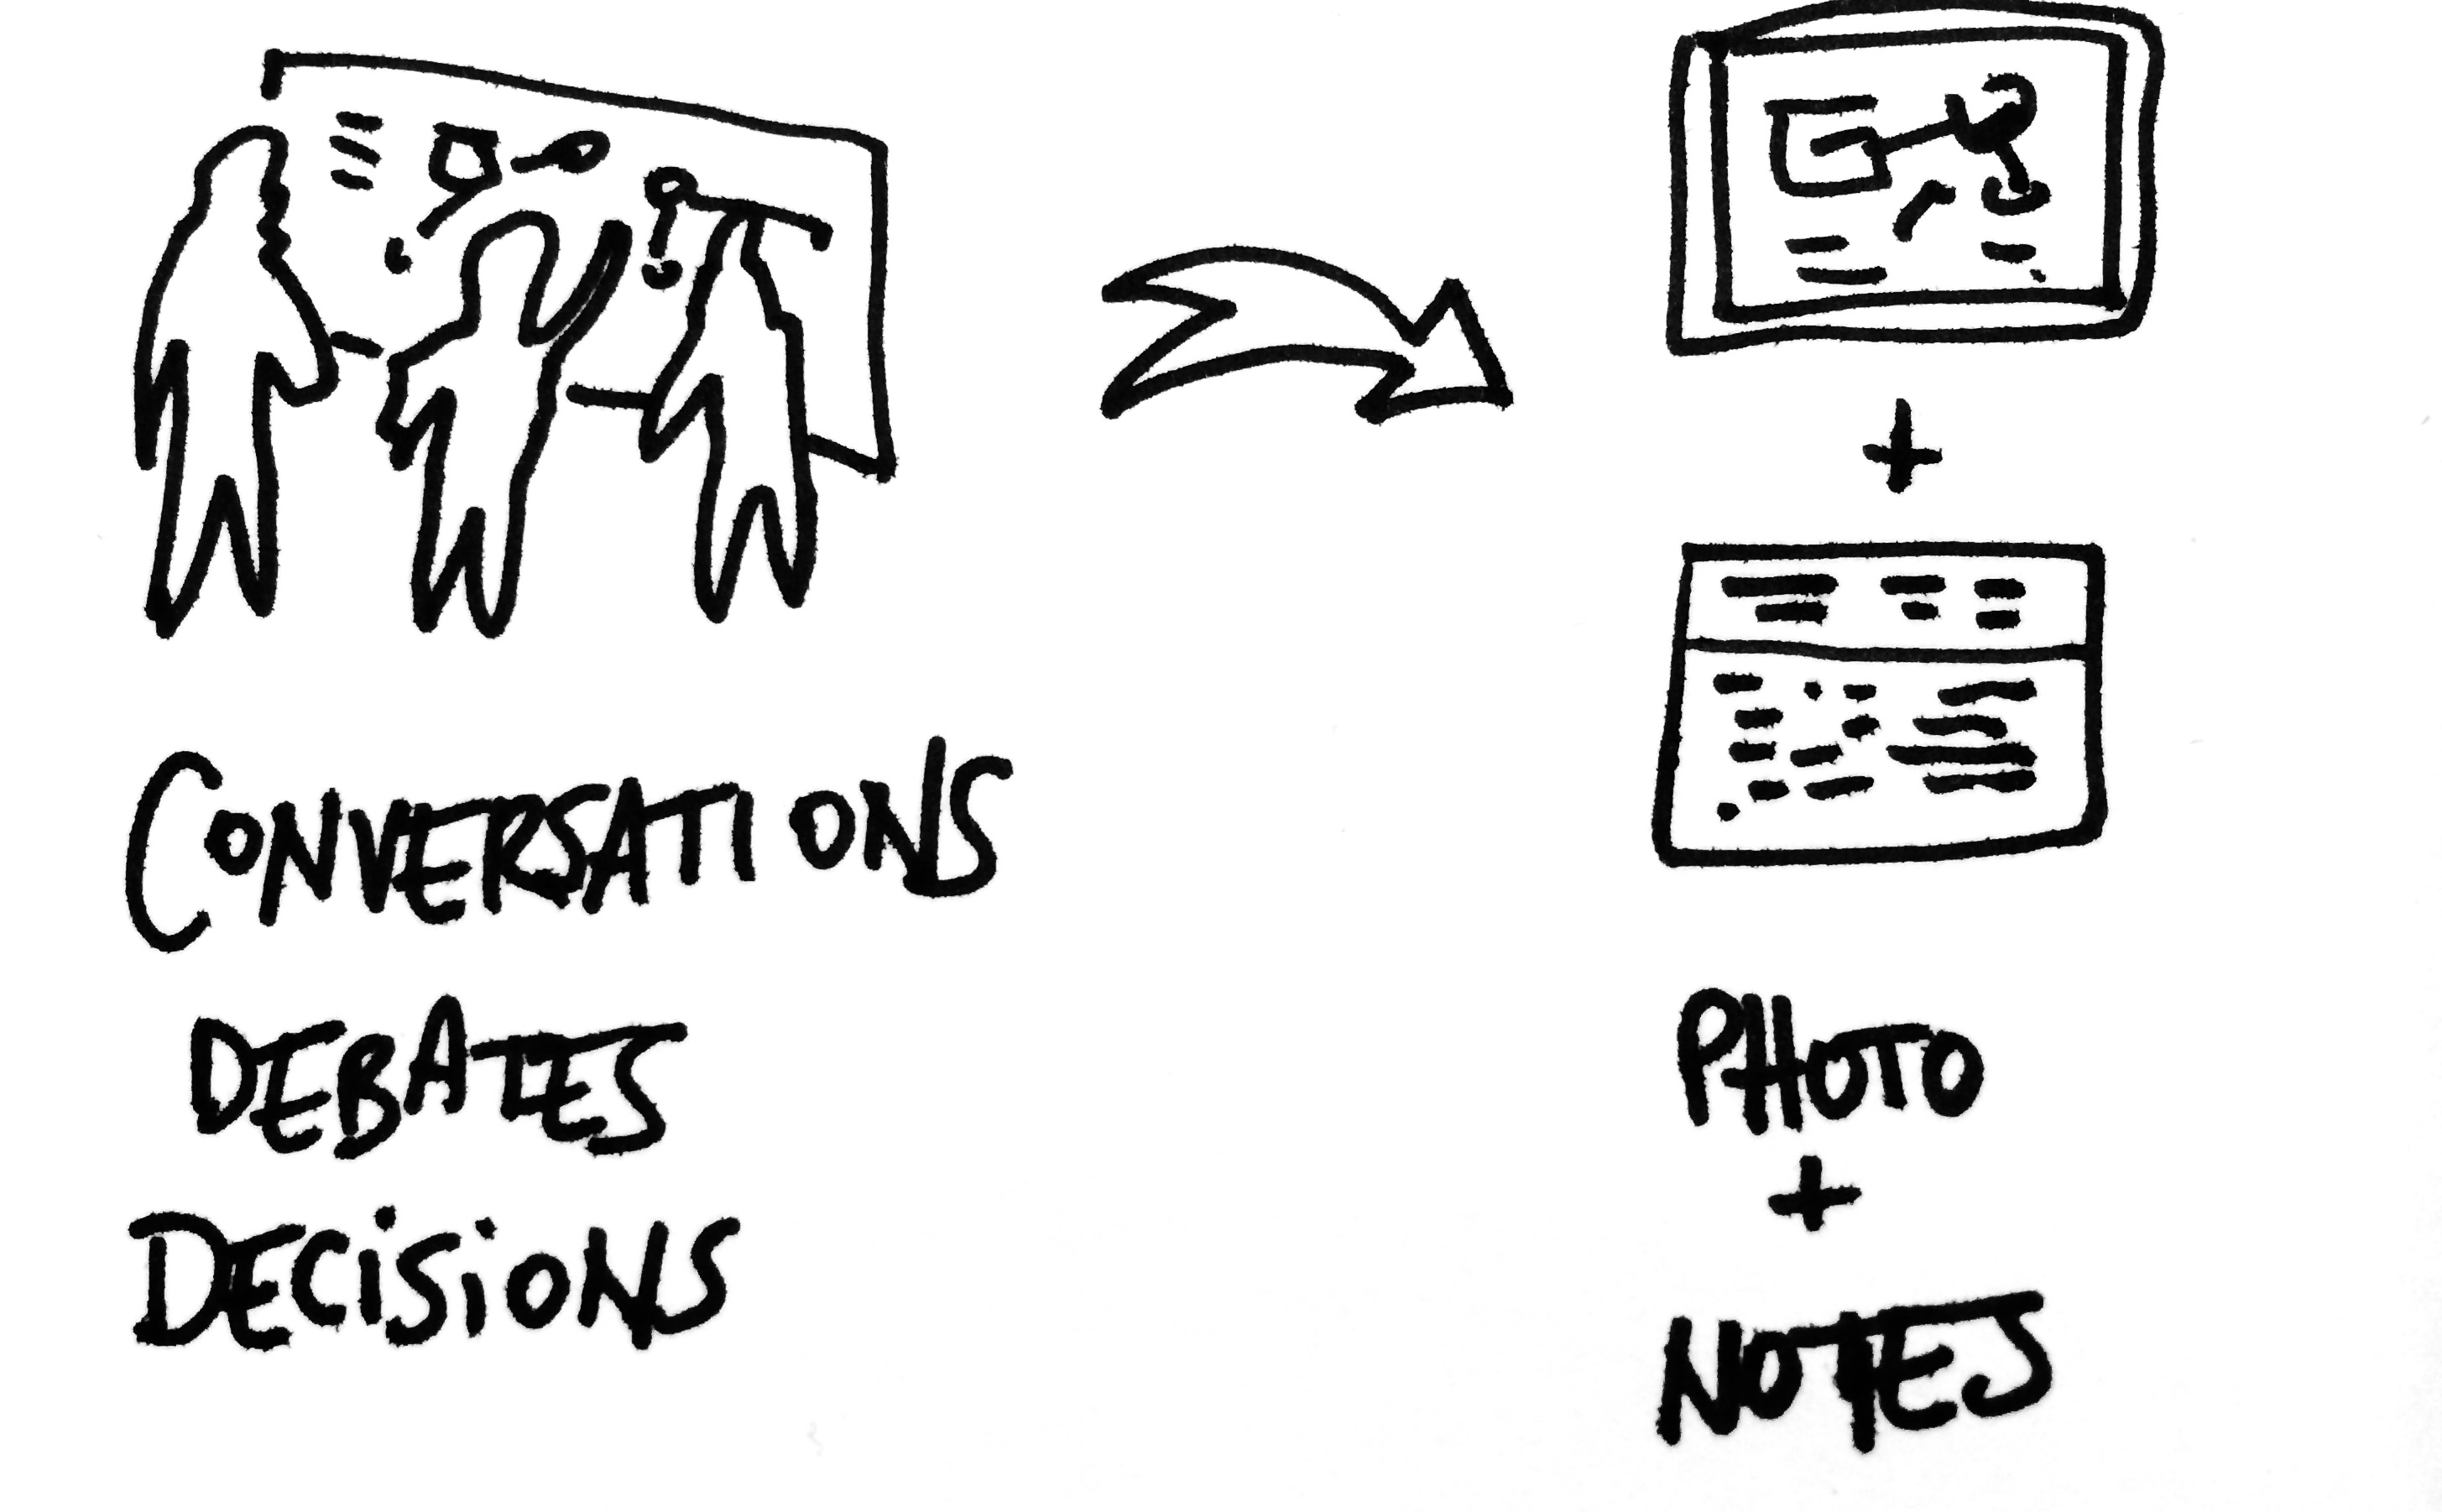 CONVERSATIONS
DEBATES
DECiSiONS
+
PHOTO
+
NOTES